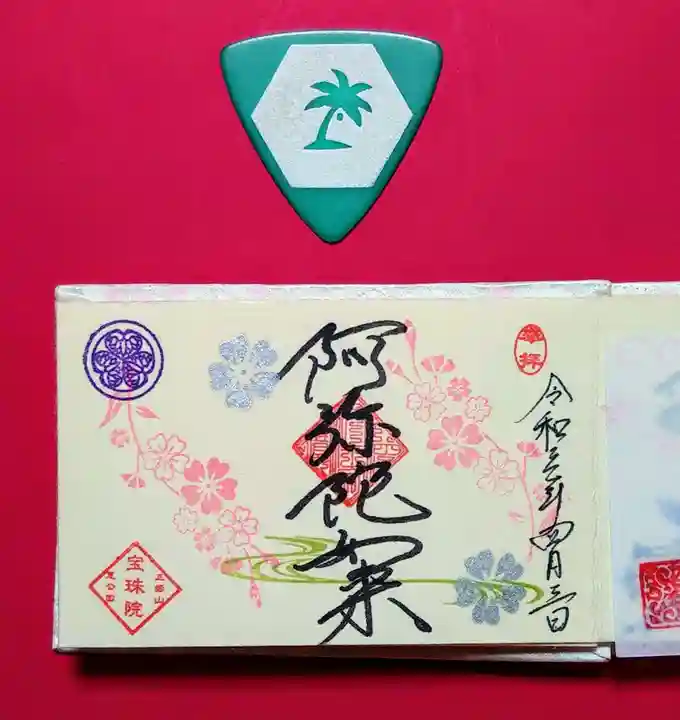 奉拝
令和三年四月三日
阿弥陀如来
宝珠院
三縁山
芝公園